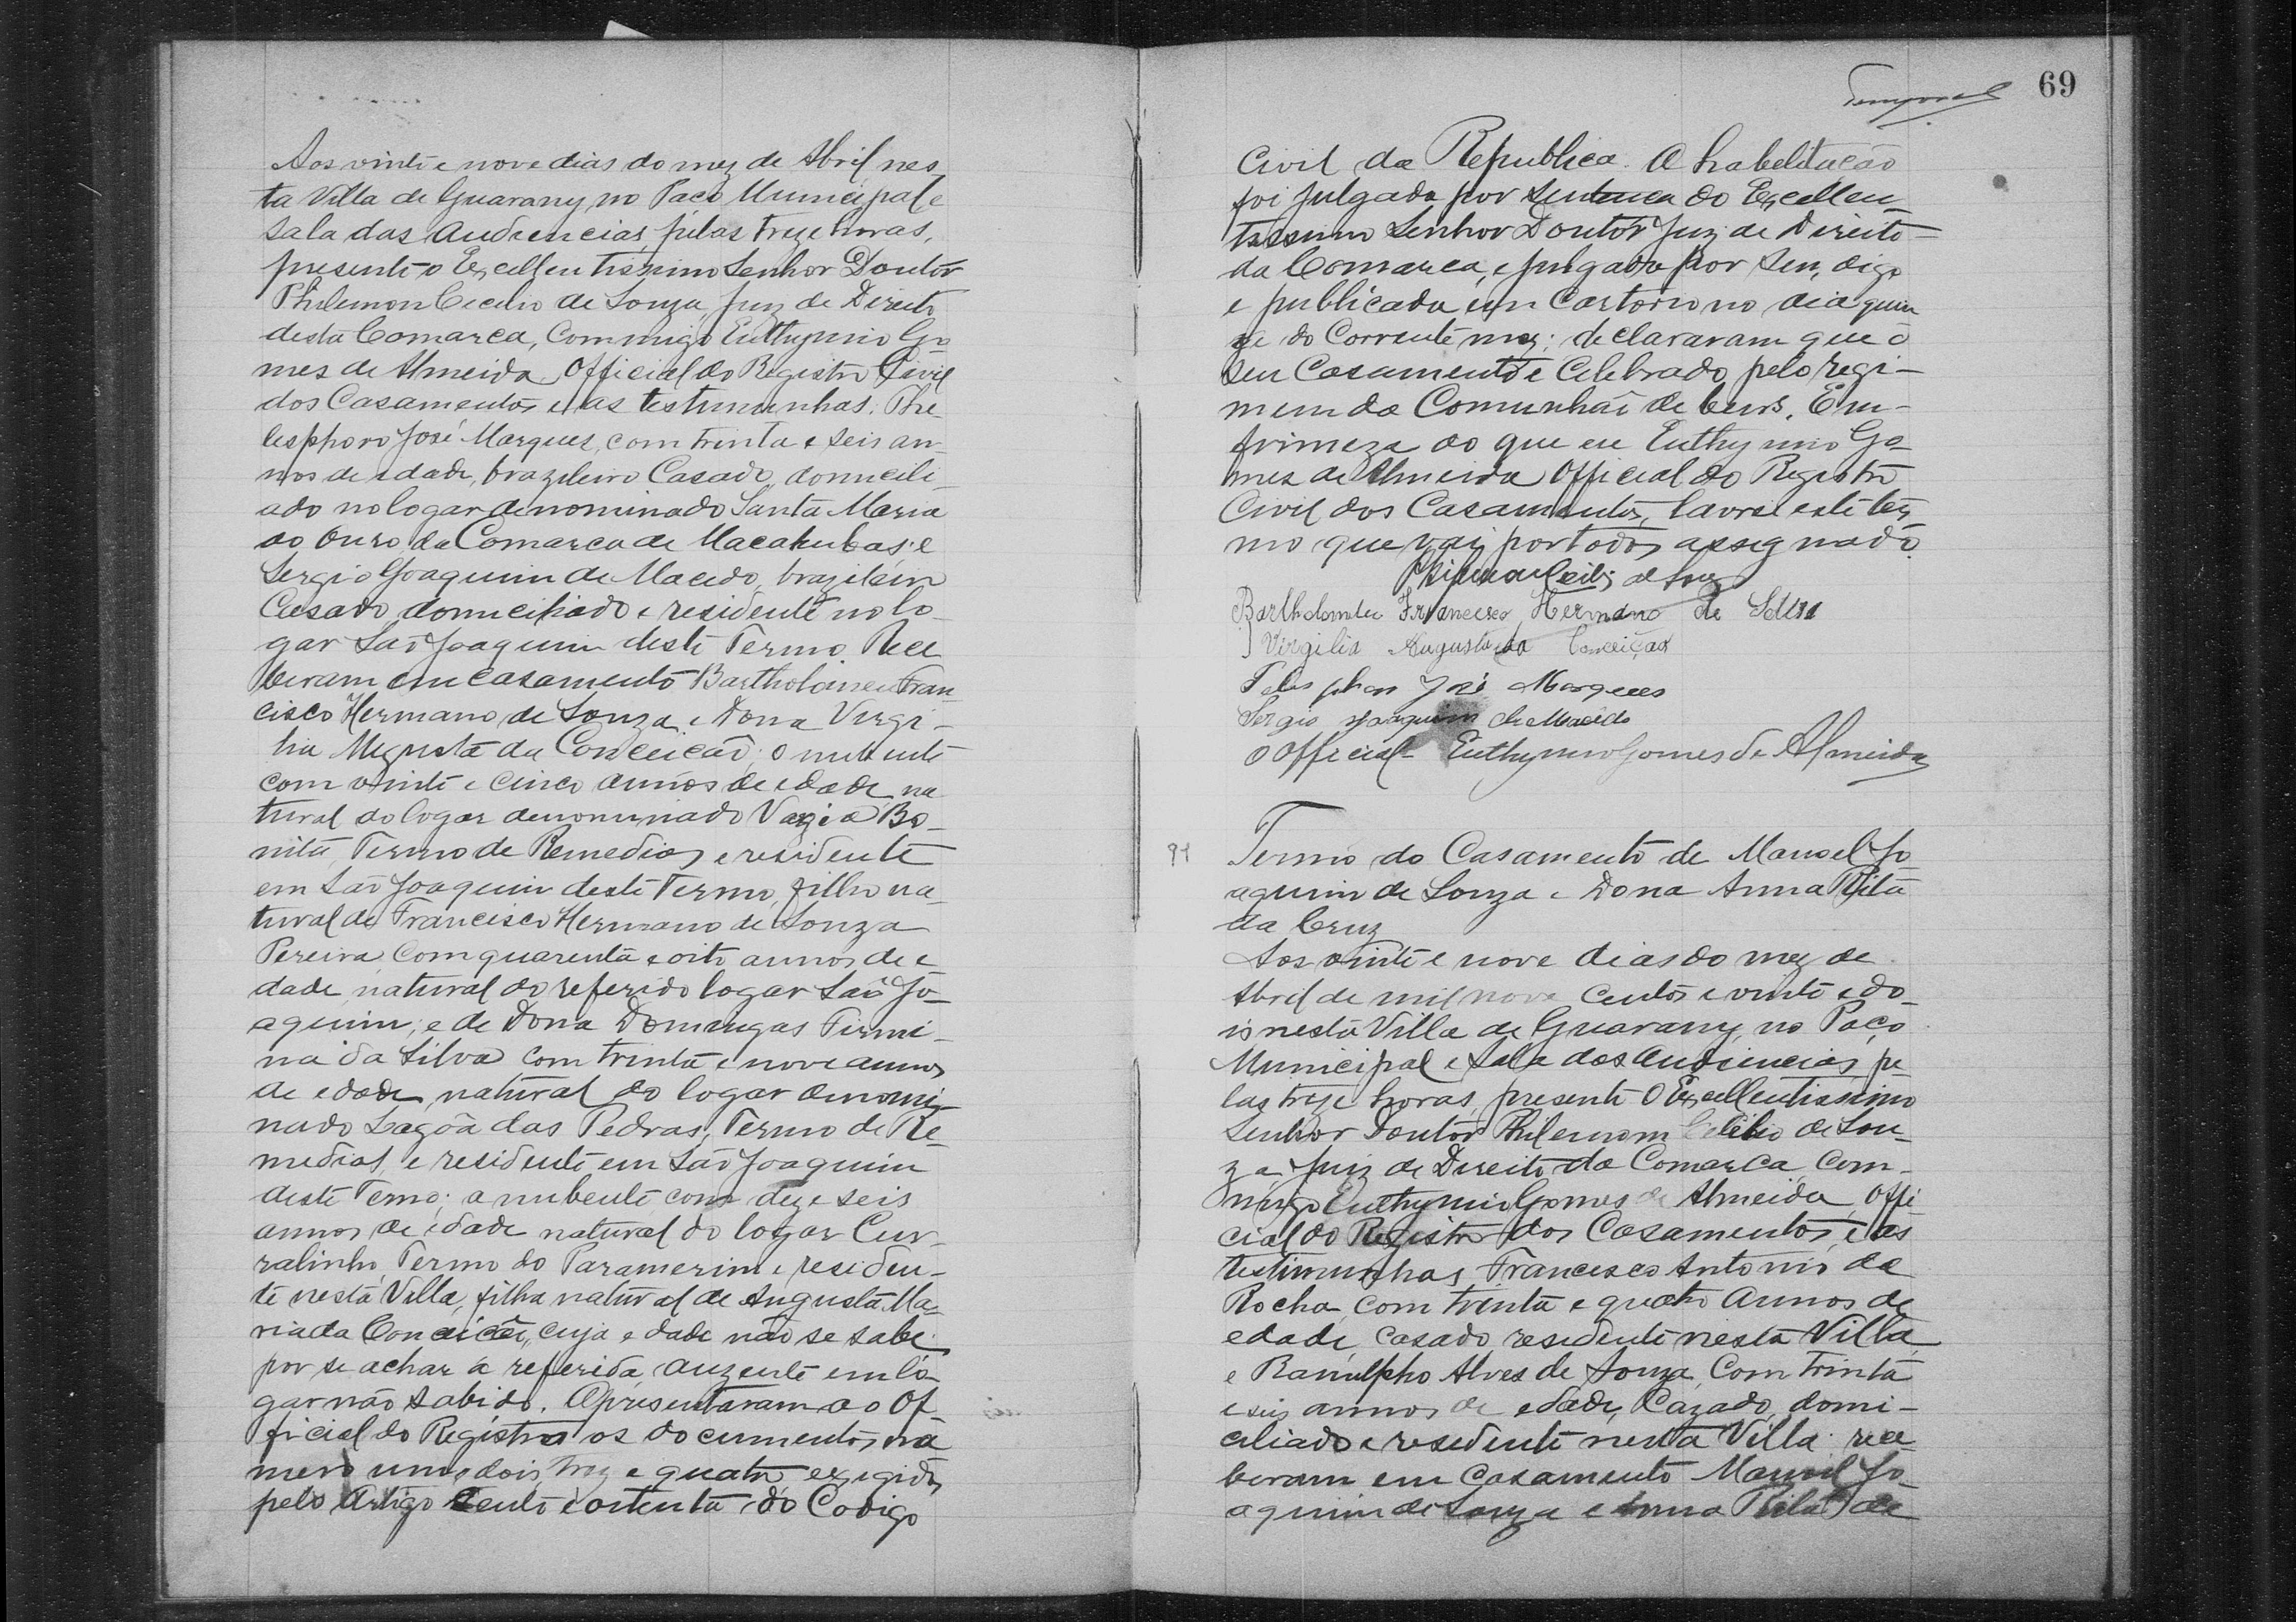 Aos vinte e nove dias do mez de Abril, nes
ta Villa de Guarany, no Paço Municipal e
sala das audiencias, pelas treze horas,
presente o Excellentissimo Senhor Doutor
Philemon Cecilio de Souza, juiz de Direito
desta Comarca, commigo Euthymio Go
mes de Almeida Official do Registro Civil
dos Casamentos e as testimunhas: The
lesphoro José Marques, com trinta e seis an
nos de edade, brazileiro Casado, domicili
ado no logar denominado Santa Maria
do Ouro, da Comarca de Macahubas; e
Sergio Joaquim de Macedo, brazileiro
Casado, domiciliado e residente no lo
gar São Joaquim deste Termo. Rece
beram em casamento Bartholomeu Fran
cisco Hermano de Souza e Dona Virgi-
lia Augusta da Conceição; o nubente
com vinte e cinco annos de edade, na
tural do logar denominado Vargia Bo-
nita, Termo de Remedios e residente
em São Joaquim deste Termo, filho na-
tural de Francisco Hermano de Souza
Pereira, com quarenta e oito annos de e
dade, natural do referido logar São Jo-
aquim; e de Dona Domingas Firmi-
na da Silva com trinta e nove annos
de edade, natural do logar denomi
nado Lagôa das Pedras, Termo de Re-
medios, e residente em São Joaquim
deste Termo; a nubente com deze seis
annos de edade natural do logar Cur-
ralinho, Termo do Paramerim e residen-
te nesta Villa, filha natural de Augusta Ma-
ria da Conceição, cuja edade não se sabe
por se achar a referida, auzente em lo-
gar não sabido. Apresentaram ao Of-
ficial do Registro os documentos nu
mero um, dois, trez e quatro exigidos
pelo Artigo cento e oitenta do Codigo
69
Civil da Republica. A habelitação
foi julgada por sentença do Excellen
tissimo Senhor Doutor Juiz de Direito
da Comarca, e julgada por sen, digo
e publicada em Cartorio no dia quin
ze do Corrente mez; declararam que o
seu Casamento é celebrado pelo regi-
mem da Comunhão de bens. Em-
firmeza do que eu Euthymio Go-
mes de Almeida Official do Registro
Civil dos Casamentos, lavrei este ter
mo que vai por todos assegnado.
Philemon Cecilio de Souza
Bartholomeu Francisco Hermano de Souza
Virgilia Augusta da Conceição
Telesphoro José Marques
Sergio Joaquim de Macedo
O Official Euthymio Gomes de Almeida
91 Termo do Casamento de Manoel Jo
aquim de Souza e Dona Anna Rita
da Cruz
Aos vinte e nove dias do mez de
Abril de mil nove centos e vinte e do
is nesta Villa de Guarany, no Paço
Municipal e Sala das Audiencias, pe
las treze horas, presente o Excellentissimo
Senhor Doutor Philemom Cecilio de Sou-
za, Juiz de Direito da Comarca, com-
migo Euthymio Gomes de Almeida, Offi
cial do Registro dos Casamentos, e as
testimunhas, Francisco Antonio da
Rocha, com trinta e quatro annos de
edade, casado residente nesta Villa
e Ranulpho Alves de Souza, com trinta
e seis annos de edade, Cazado, domi-
ciliado e residente nesta Villa: rece-
beram em Casamento Manoel Jo
aquim de Souza e Anna Rita da